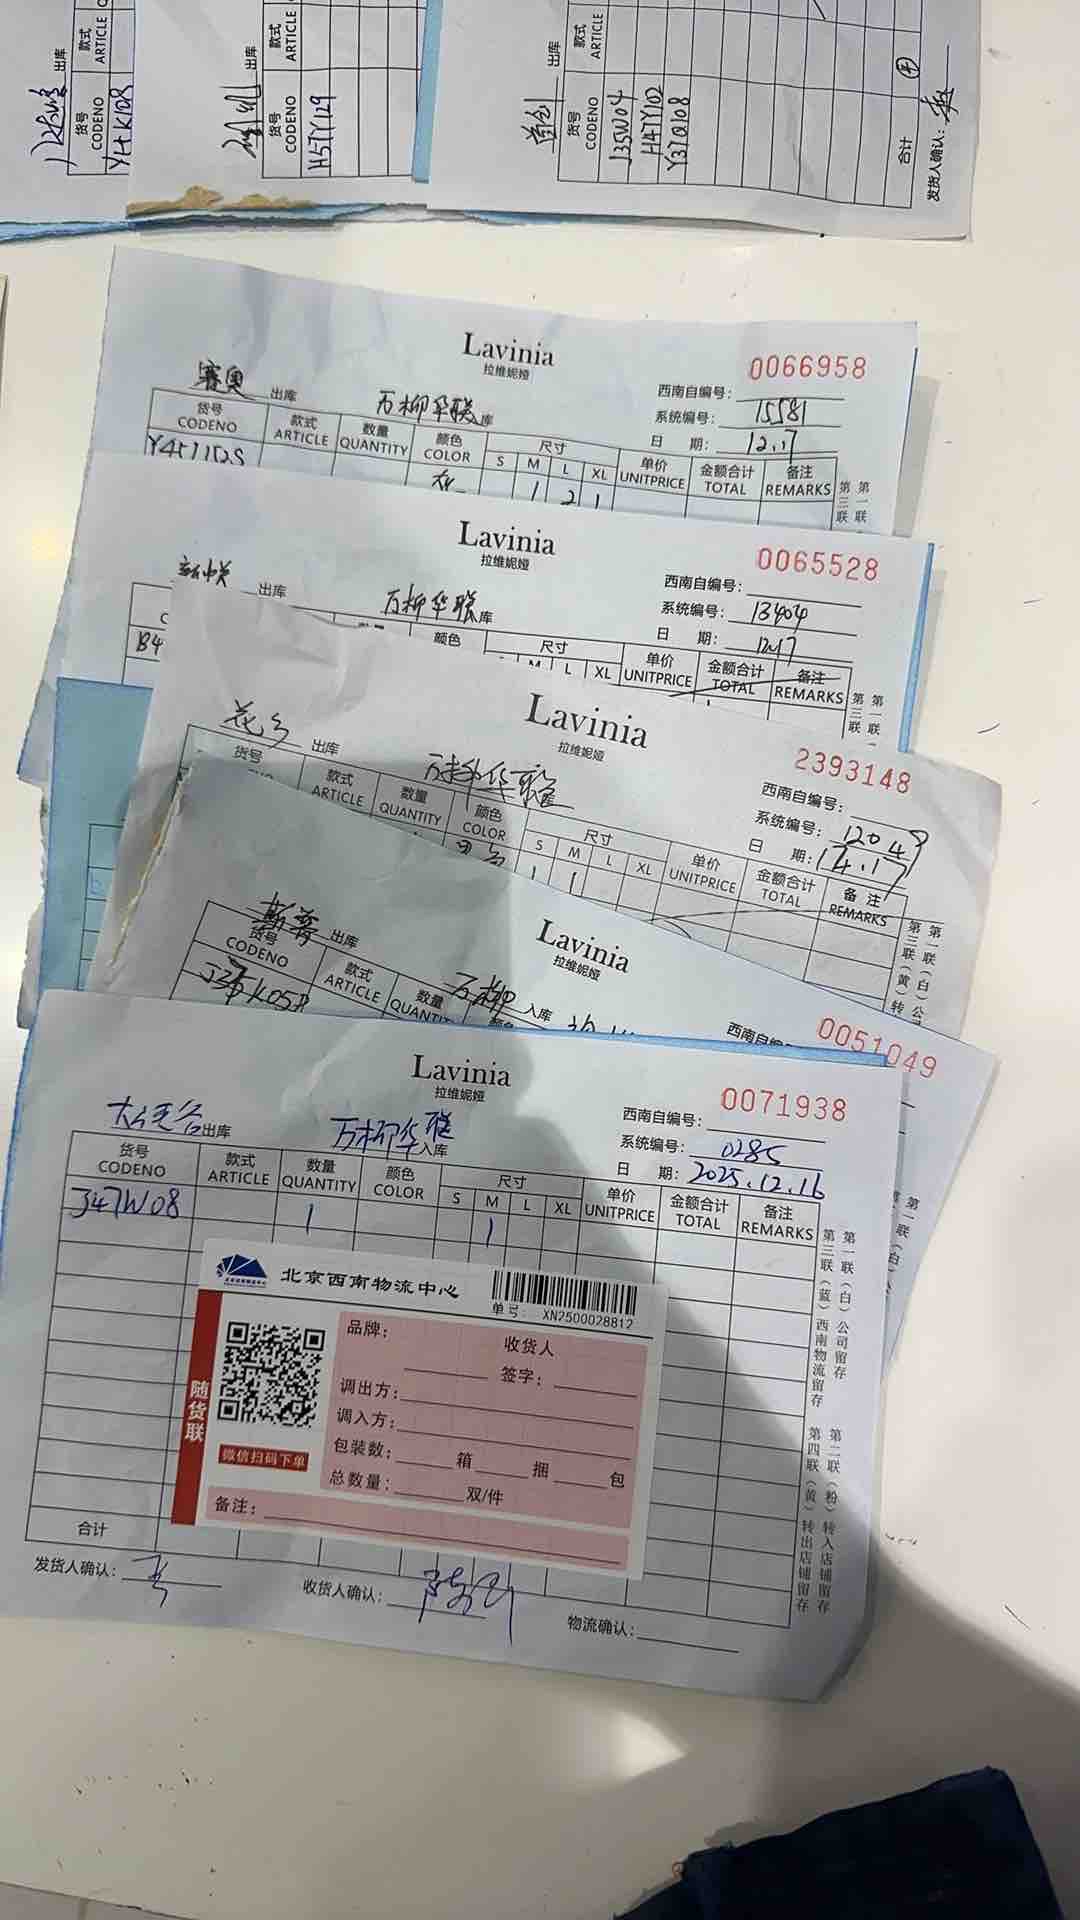 出库
款式
ARTICLE
货号
CODENO
YHK108
出库
款式
ARTICLE
货号
CODENO
H5TY129
出库
款式
ARTICLE
货号
CODENO
J35W04
H47Y102
Y370108
合计
发货人确认:
Lavinia
拉维妮娅
0066958
赛奥 出库
万柳华联 库
西南自编号:
系统编号: 15581
日 期: 12.17
货号
CODENO
款式
ARTICLE
数量
QUANTITY
颜色
COLOR
尺寸
S M L XL
单价
UNITPRICE
金额合计
TOTAL
备注
REMARKS
1 2 1
第一联
第三联
Lavinia
拉维妮娅
0065528
出库
万柳华联 库
西南自编号:
系统编号: 13404
日 期: 12.17
颜色
尺寸
M L XL
单价
UNITPRICE
金额合计
TOTAL
备注
REMARKS
B4
第一联
第三联
Lavinia
拉维妮娅
2393148
花乡 出库
万柳华联
西南自编号:
系统编号: 12049
日 期:
货号
款式
ARTICLE
数量
QUANTITY
颜色
COLOR
尺寸
S M L XL
单价
UNITPRICE
金额合计
TOTAL
备注
REMARKS
1 1
第一联(白)公
第三联(黄)转
Lavinia
拉维妮娅
0051049
出库
万柳 入库
西南自编
货号
CODENO
款式
ARTICLE
数量
QUANTIT
Lavinia
拉维妮娅
0071938
出库
万柳华联 入库
西南自编号:
系统编号: 0285
日 期: 2025.12.16
货号
CODENO
款式
ARTICLE
数量
QUANTITY
颜色
COLOR
尺寸
S M L XL
单价
UNITPRICE
金额合计
TOTAL
备注
REMARKS
J47W08 1 1
北京西南物流中心
单号: XN2500028812
随货联
微信扫码下单
品牌:
收货人
签字:
调出方:
调入方:
包装数: 箱 捆 包
总数量: 双/件
备注:
合计
发货人确认:
收货人确认:
物流确认:
第一联(白)公司留存
第三联(蓝)西南物流留存
第二联(粉)转入店铺留存
第四联(黄)转出店铺留存